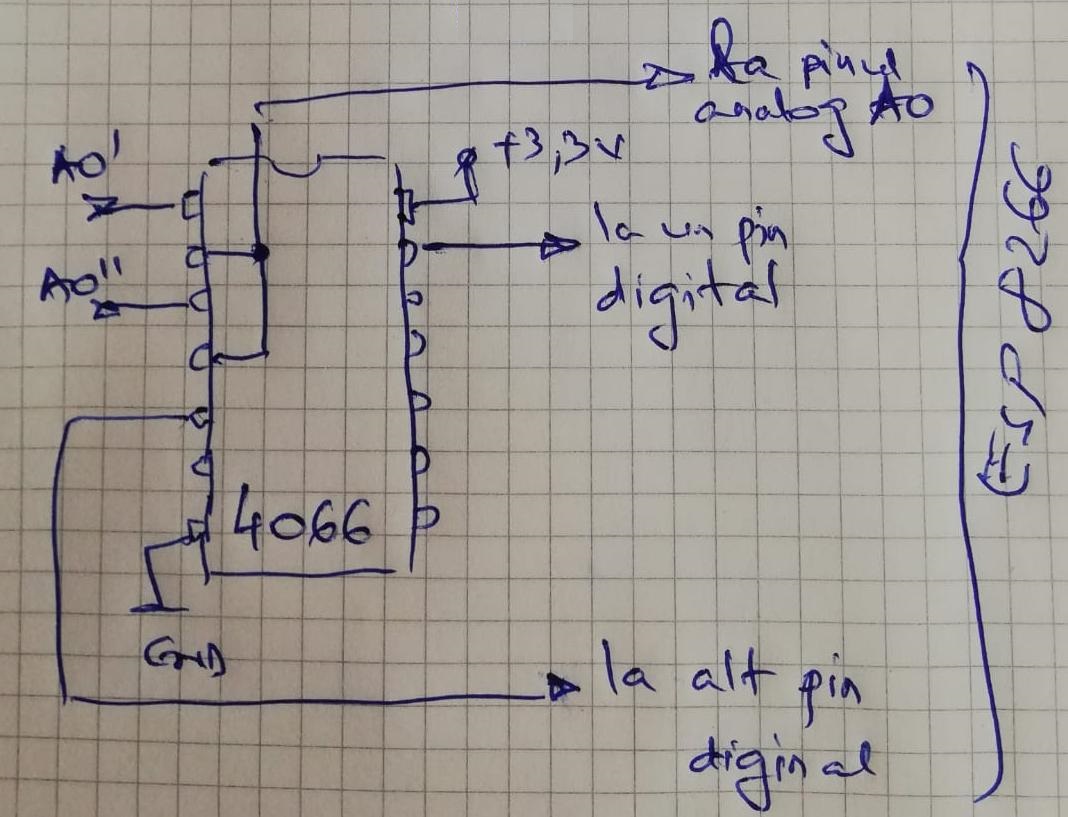 La pinul
analog A0
A0'
+3,3V
la un pin
digital
A0"
ESP8266
4066
GND
la alt pin
diginal